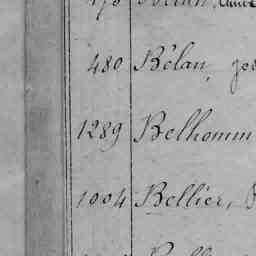 480 Bélan, Jos
1289 Belhomm
1004 Bellier,